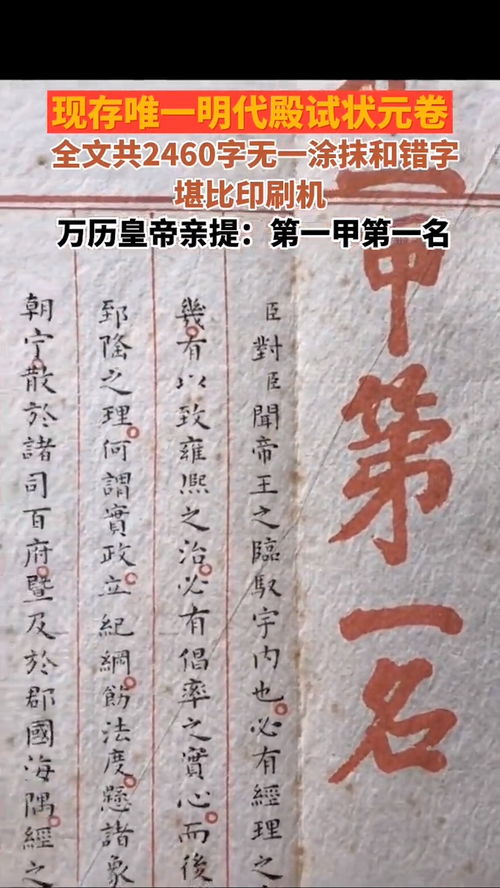 现存唯一明代殿试状元卷
全文共2460字无一涂抹和错字
堪比印刷机
万历皇帝亲提：第一甲第一名
甲第一名
臣對臣聞帝王之臨馭宇内也必有經理之
幾有以致雍熙之治必有倡率之實心而後
郅隆之理何謂實政立紀綱飭法度懸諸象
朝宁散於諸司百府暨及於郡國海隅經之